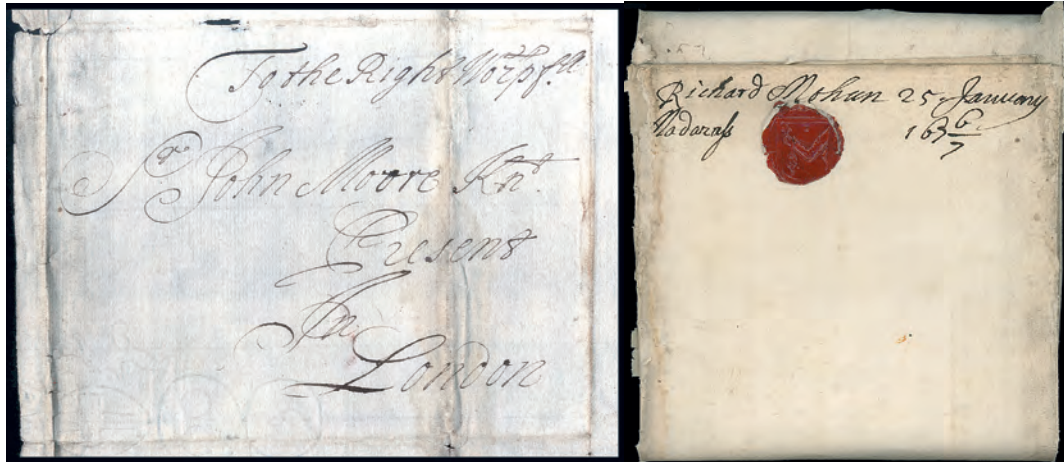 To the Right Worpf.ll
Sr. John Moore Knt.
Present
In
London
Richard Mohun 25 January
Madarass 168 6/7